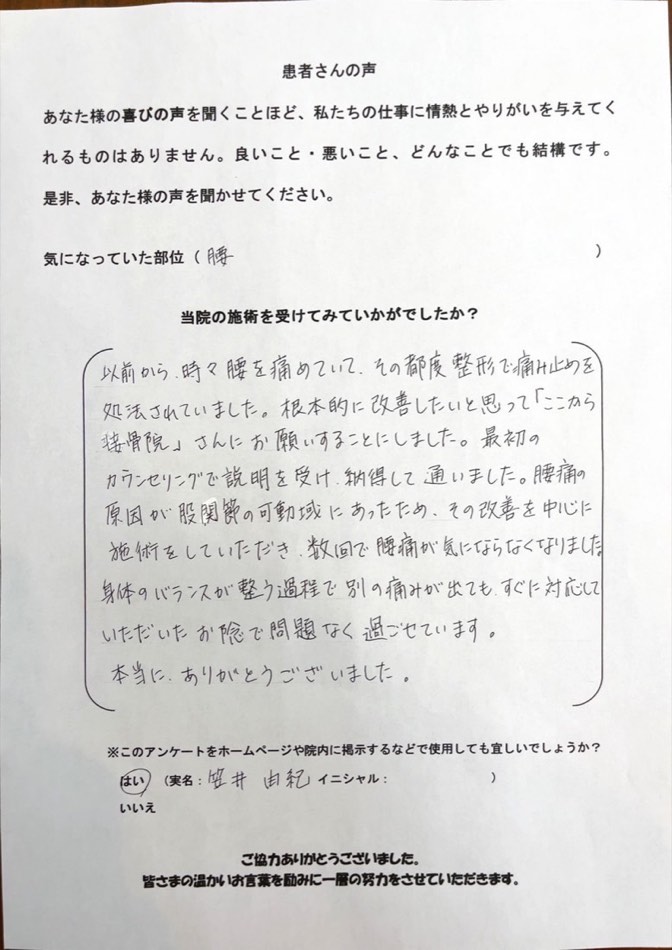 患者さんの声
あなた様の喜びの声を聞くことほど、私たちの仕事に情熱とやりがいを与えてく
れるものはありません。良いこと・悪いこと、どんなことでも結構です。
是非、あなた様の声を聞かせてください。
気になっていた部位（ 腰 ）
当院の施術を受けてみていかがでしたか？
以前から、時々腰を痛めていて、その都度整形で痛み止めを
処法されていました。根本的に改善したいと思って「ここから
接骨院」さんにお願いすることにしました。最初の
カウンセリングで説明を受け、納得して通いました。腰痛の
原因が股関節の可動域にあったため、その改善を中心に
施術をしていただき、数回で腰痛が気にならなくなりました
身体のバランスが整う過程で別の痛みが出ても、すぐに対応して
いただいたお陰で問題なく過ごせています。
本当に、ありがとうございました。
※このアンケートをホームページや院内に掲示するなどで使用しても宜しいでしょうか？
はい （実名：笠井 由紀 イニシャル： ）
いいえ
ご協力ありがとうございました。
皆さまの温かいお言葉を励みに一層の努力をさせていただきます。